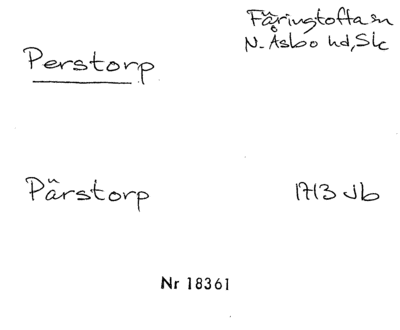 Färingtofta sn
Perstorp
N. Åsbo hd, Sk
Pärstorp 1713 Jb
Nr 18361